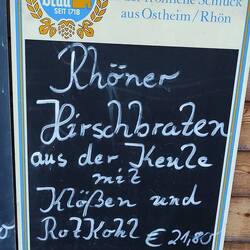 bräu
SEIT 1718
fröhliche Schluck
aus Ostheim/Rhön
Rhöner
Hirschbraten
aus der Keule
mit
Klößen und
RotKohl € 21,80